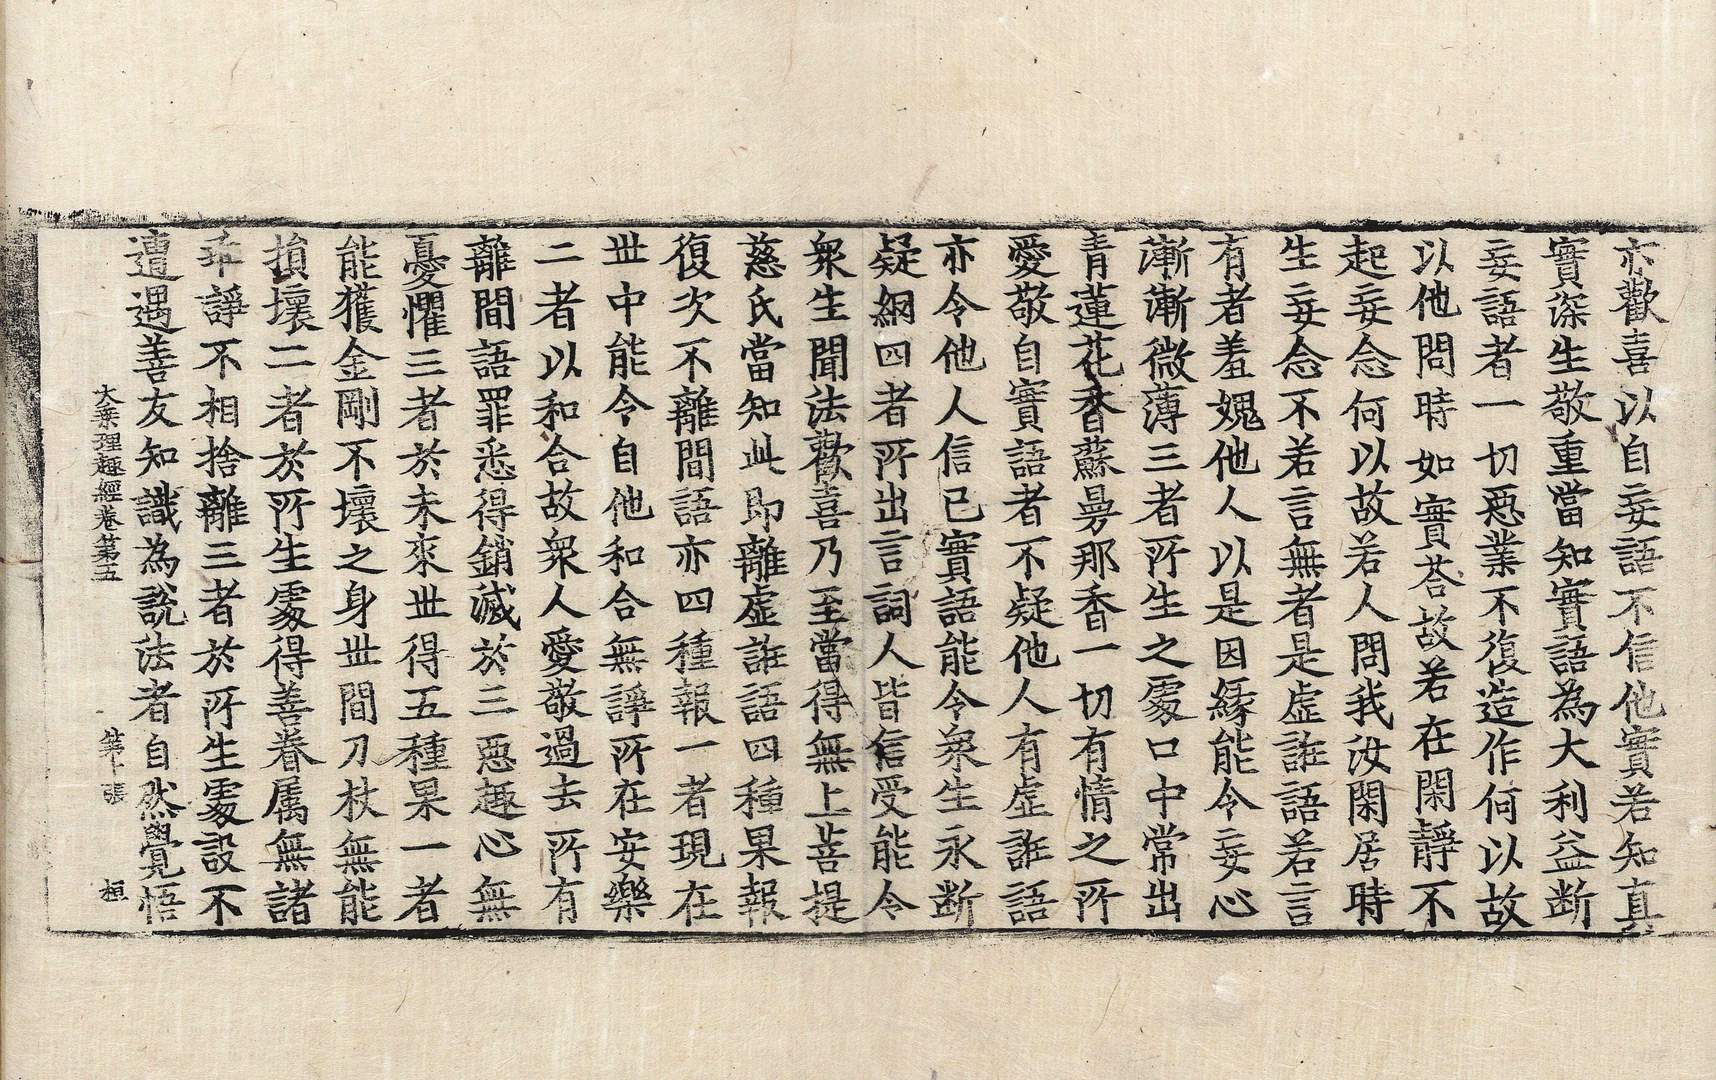 亦歡喜以自妄語不信他實若知真
實深生敬重當知實語為大利益断
妄語者一切惡業不復造作何以故
以他問時如實荅故若在閑靜不
起妄念何以故若人問我汝閑居時
生妄念不若言無者是虛誑語若言
有者羞媿他人以是因緣能令妄心
漸漸微薄三者所生之處口中常出
青蓮花香蘇曼那香一切有情之所
愛敬自實語者不疑他人有虛誑語
亦令他人信已實語能令衆生永断
疑網四者所出言詞人皆信受能令
衆生聞法歡喜乃至當得無上菩提
慈氏當知此即離虛誑語四種果報
復次不離間語亦四種報一者現在
丗中能令自他和合無諍所在安樂
二者以和合故衆人愛敬過去所有
離間語罪悉得銷滅於三惡趣心無
憂懼三者於未來丗得五種果一者
能獲金剛不壞之身丗間刀杖無能
損壞二者於所生處得善眷属無諸
乖諍不相捨離三者於所生處設不
遭遇善友知識為說法者自然覺悟
大乗理趣經卷第五 第十張 桓